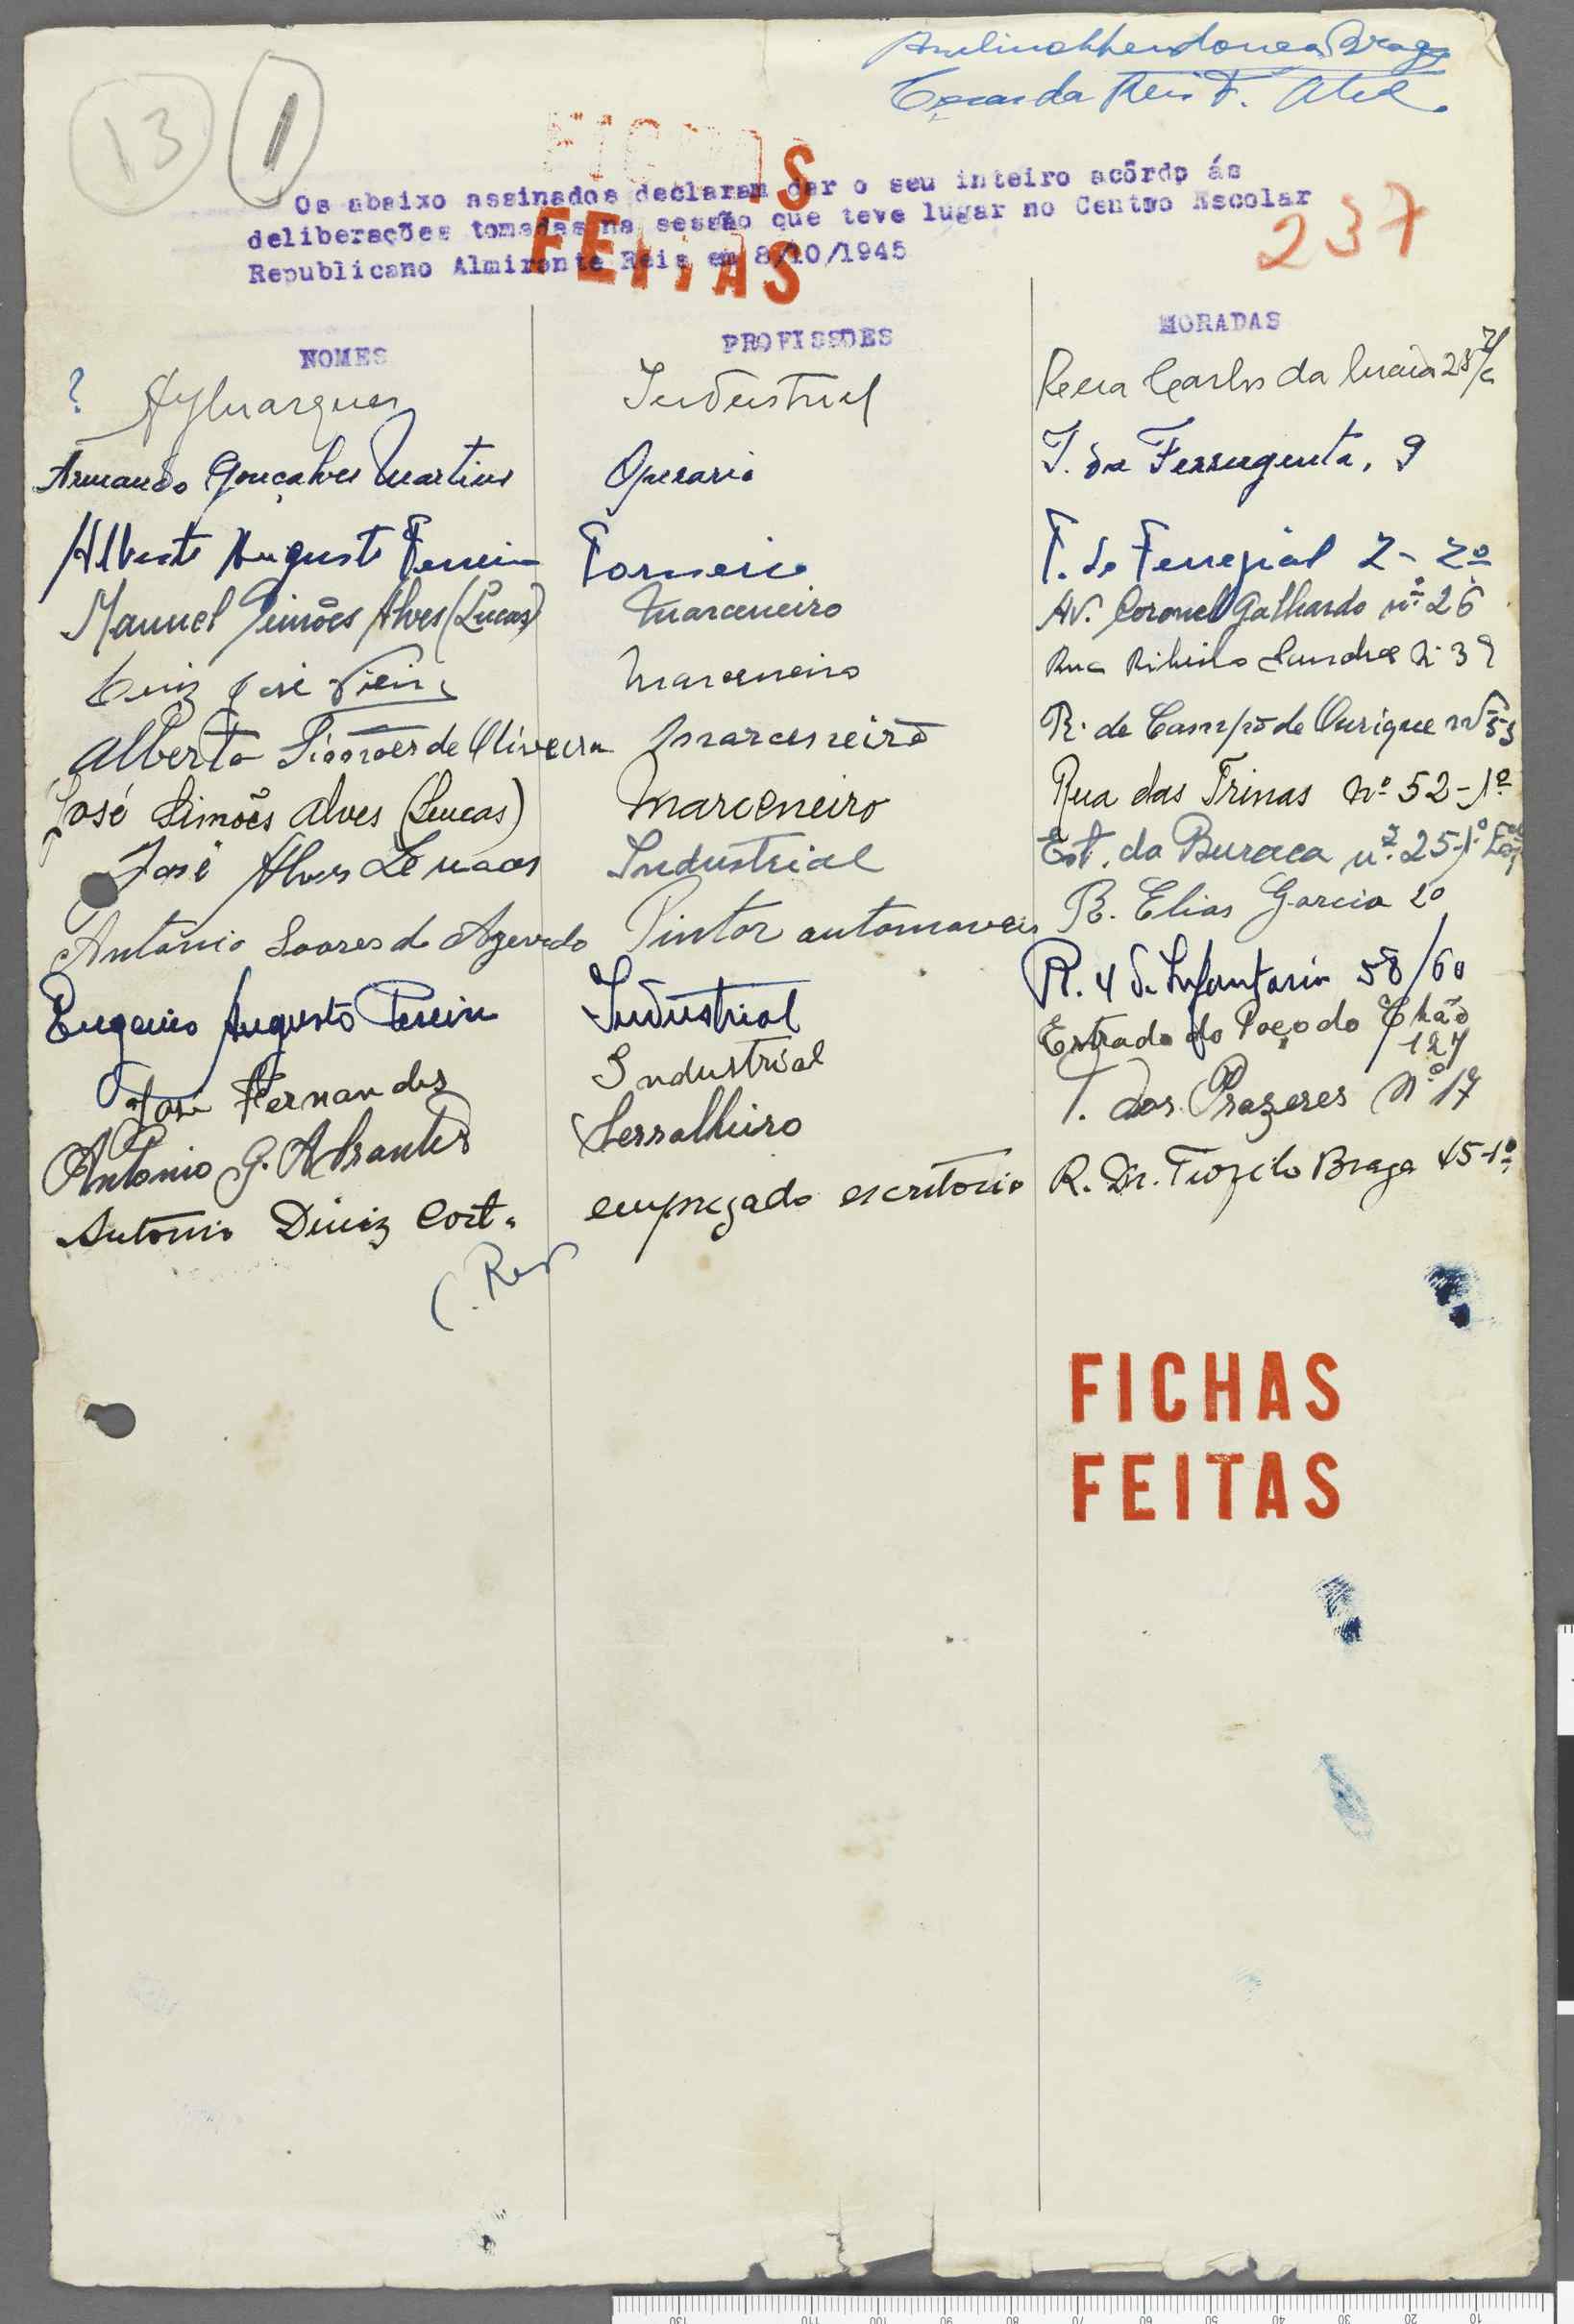 13 1
FICHAS
FEITAS
237
Os abaixo assinados declaram dar o seu inteiro acôrdp ás
deliberações tomadas na sessão que teve lugar no Centro Escolar
Republicano Almirante Reis em 8/10/1945
NOMES PROFISSOES MORADAS
? Industrial Rua Carlos da Maia 28
Armando Gonçalves Martins Operario T. da Ferrugenta, 9
Alberto Augusto Ferreira Torneiro T. do Ferregial 2-2º
Manuel Simões Alves (Lucas) Marceneiro Av. Coronel Galhardo nº 26
Luiz José Vieira Marceneiro Rua Ribeiro Sanches Nº 39
Alberto Simões de Oliveira Marceneiro R. de Campo de Ourique nº 53
José Simões Alves (Lucas) Marceneiro Rua das Trinas Nº 52-1º
José Alves Lucas Industrial Est. da Buraca nº 25-1º
António Soares de Azevedo Pintor automaveis R. Elias Garcia 20
Eugenio Augusto Pereira Industrial R. 4 de Infantaria 58/60
José Fernandes Industrial Estrada do Poço do Chão 127
Antonio G. Abrantes Serralheiro T. dos Prazeres Nº 17
Antonio Diniz Costa empregado escritorio R. Dr. Teofilo Braga 45-1º
FICHAS
FEITAS